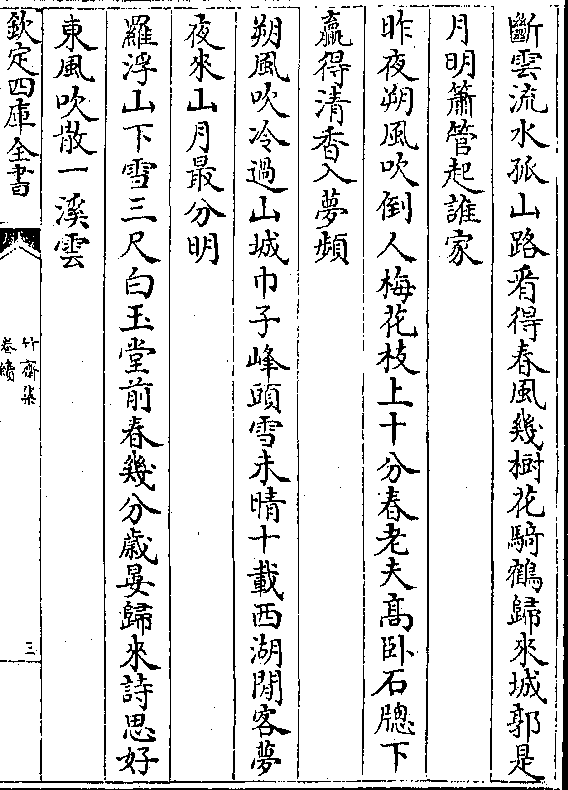 斷雲流水孤山路看得春風幾樹花騎鶴歸來城郭是
月明簫管起誰家
昨夜朔風吹倒人梅花枝上十分春老夫髙卧石牕下
贏得清香入夢頻
朔風吹冷過山城巾子峰頭雪未晴十載西湖閒客夢
夜來山月最分明
羅浮山下雪三尺白玉堂前春幾分歳晏歸來詩思好
東風吹散一溪雲
欽定四庫全書
竹齋集
卷續
三